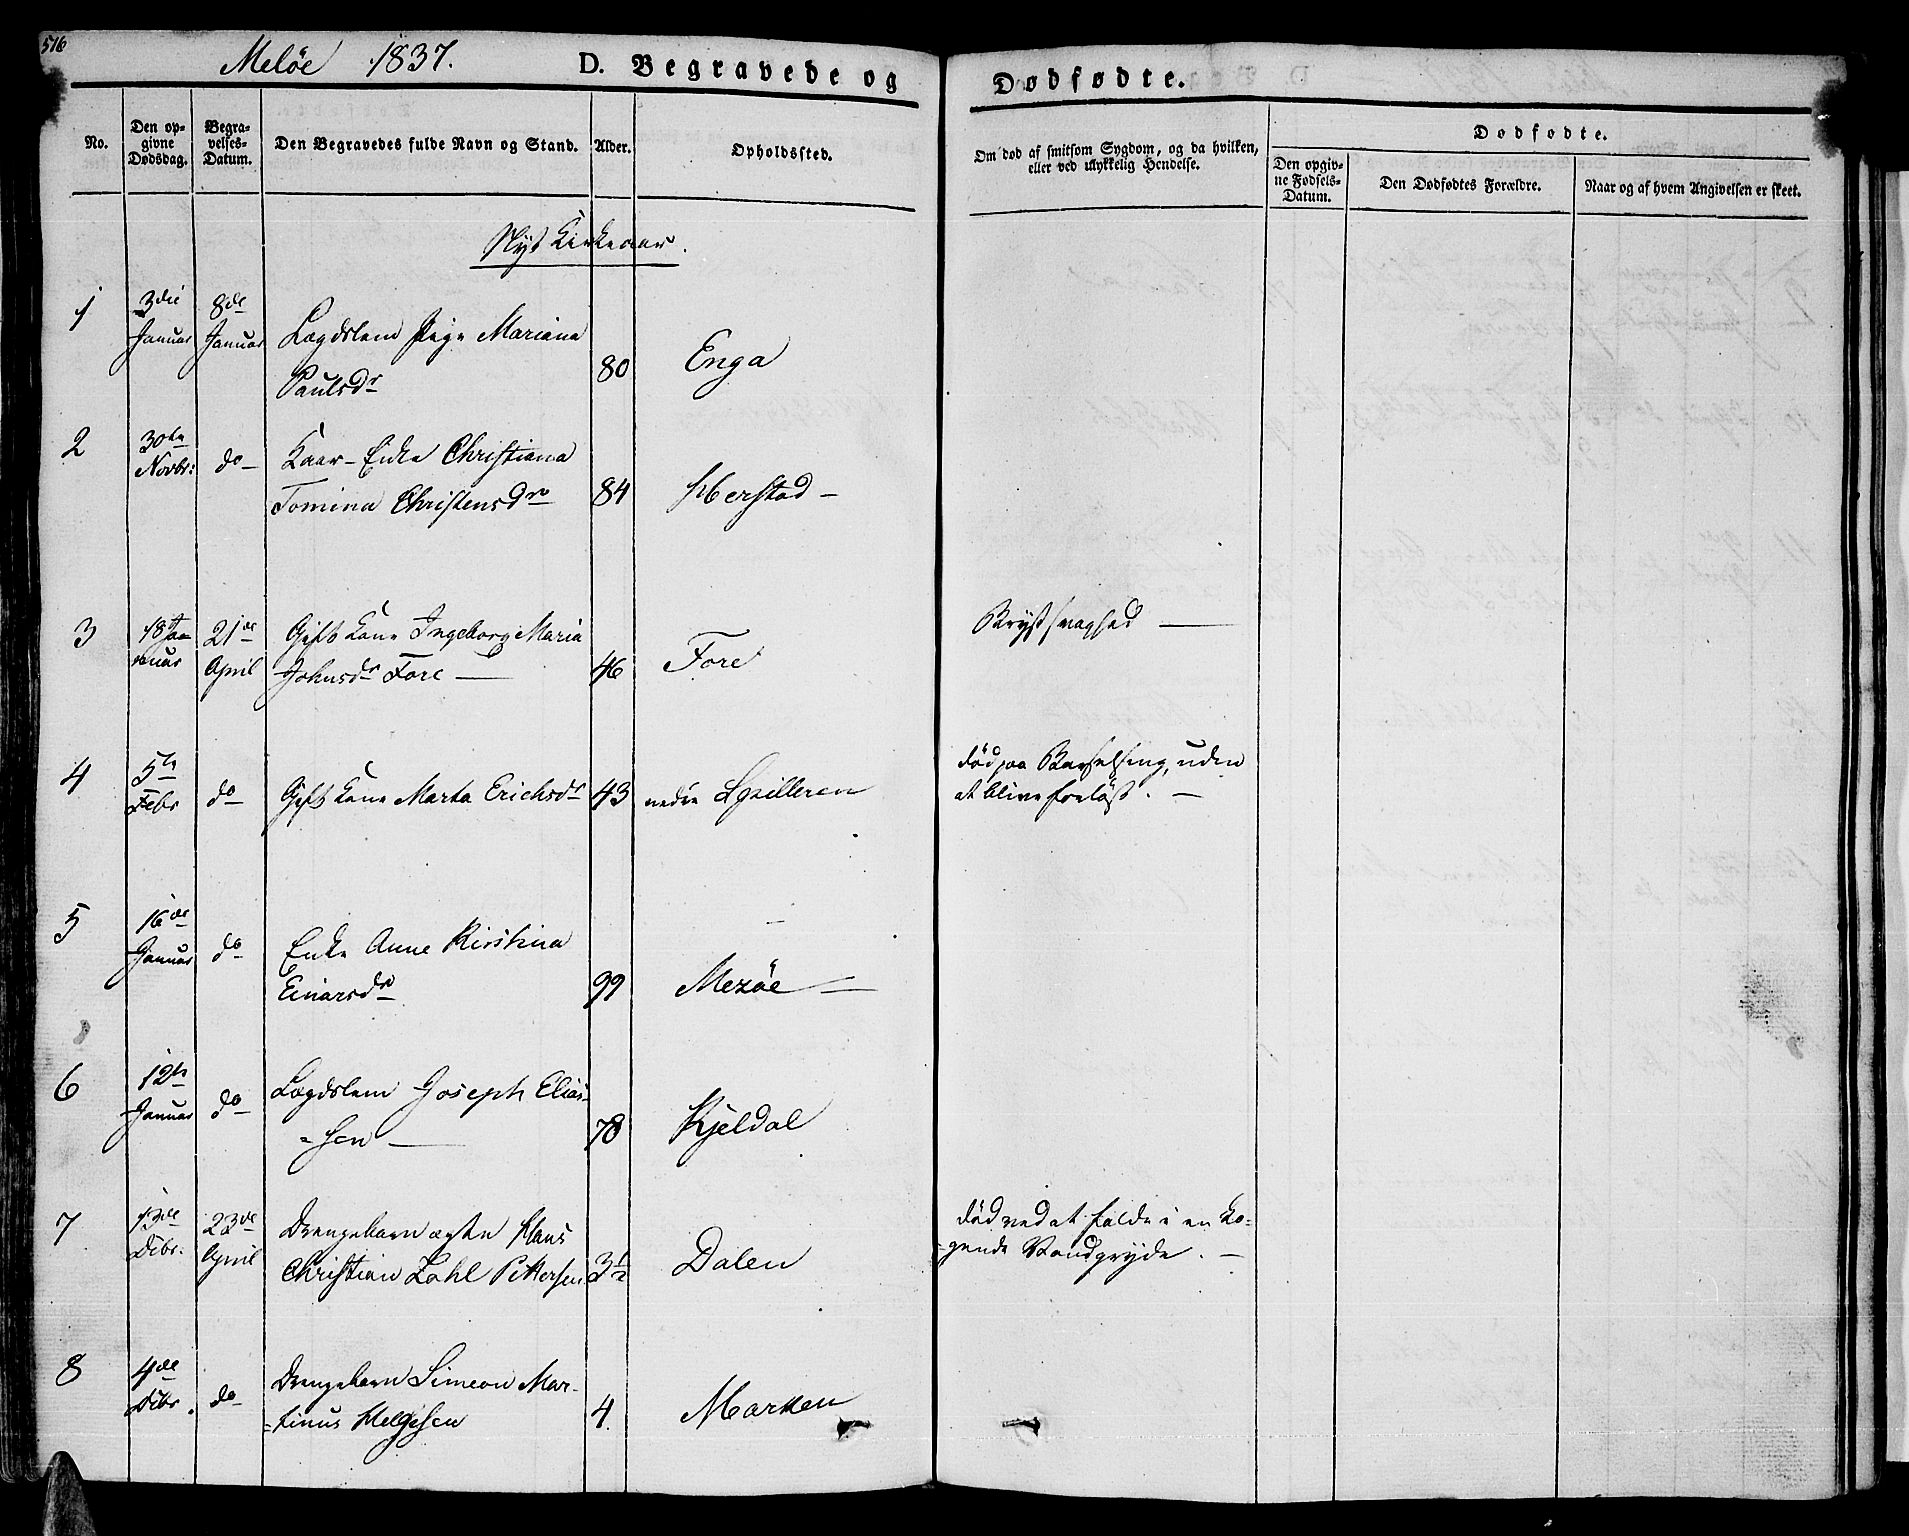 516
Meløe 1837.
D. Begravede og Dødfødte.
No.
Den op-
givne
Dødsdag.
Begra-
velses-
Datum.
Den Begravedes fulde Navn og Stand.
Alder.
Opholdssted.
Om død af smitsom Sygdom, og da hvilken,
eller ved ulykkelig Hendelse.
Dødfødte.
Den opgiv-
ne Fødsels-
Datum.
Den Dødfødtes Forældre.
Naar og af hvem Angivelsen er skeet.
Nyt Kirkeaar.
1
3die
Januar
8de
Januar
Lægdslem Pige Mariana
Paulsdr
80
Enga
2
30te
Novbr:
do
Kaar-Enke Christiana
Tomina Christensdr
84
Herstad
3
18 Ja-
nuar
21de
April
Gift Kone Ingeborg Maria
Johnsdr Fore
46
Fore
Brystsvaghed
4
5te
Febr
do
Gift Kone Marta Erichsdr
43
nedre Spilleren
død paa Barselseng, uden
at blive forløst.
5
16de
Januar
do
Enke Anne Kirstina
Einarsdr
99
Mesøe
6
12te
Januar
do
Lægdslem Joseph Elias-
=sen
78
Kjeldal
7
13de
Dcbr.
23de
April
Drengebarn ægte Hans
Christian Zahl Pettersen
3½
Dalen
død ved at falde i en ko-
=gende Vandgryde.
8
4de
Dcbr.
do
Drengebarn Simeon Mar-
=tinus Helgesen
4
Marken